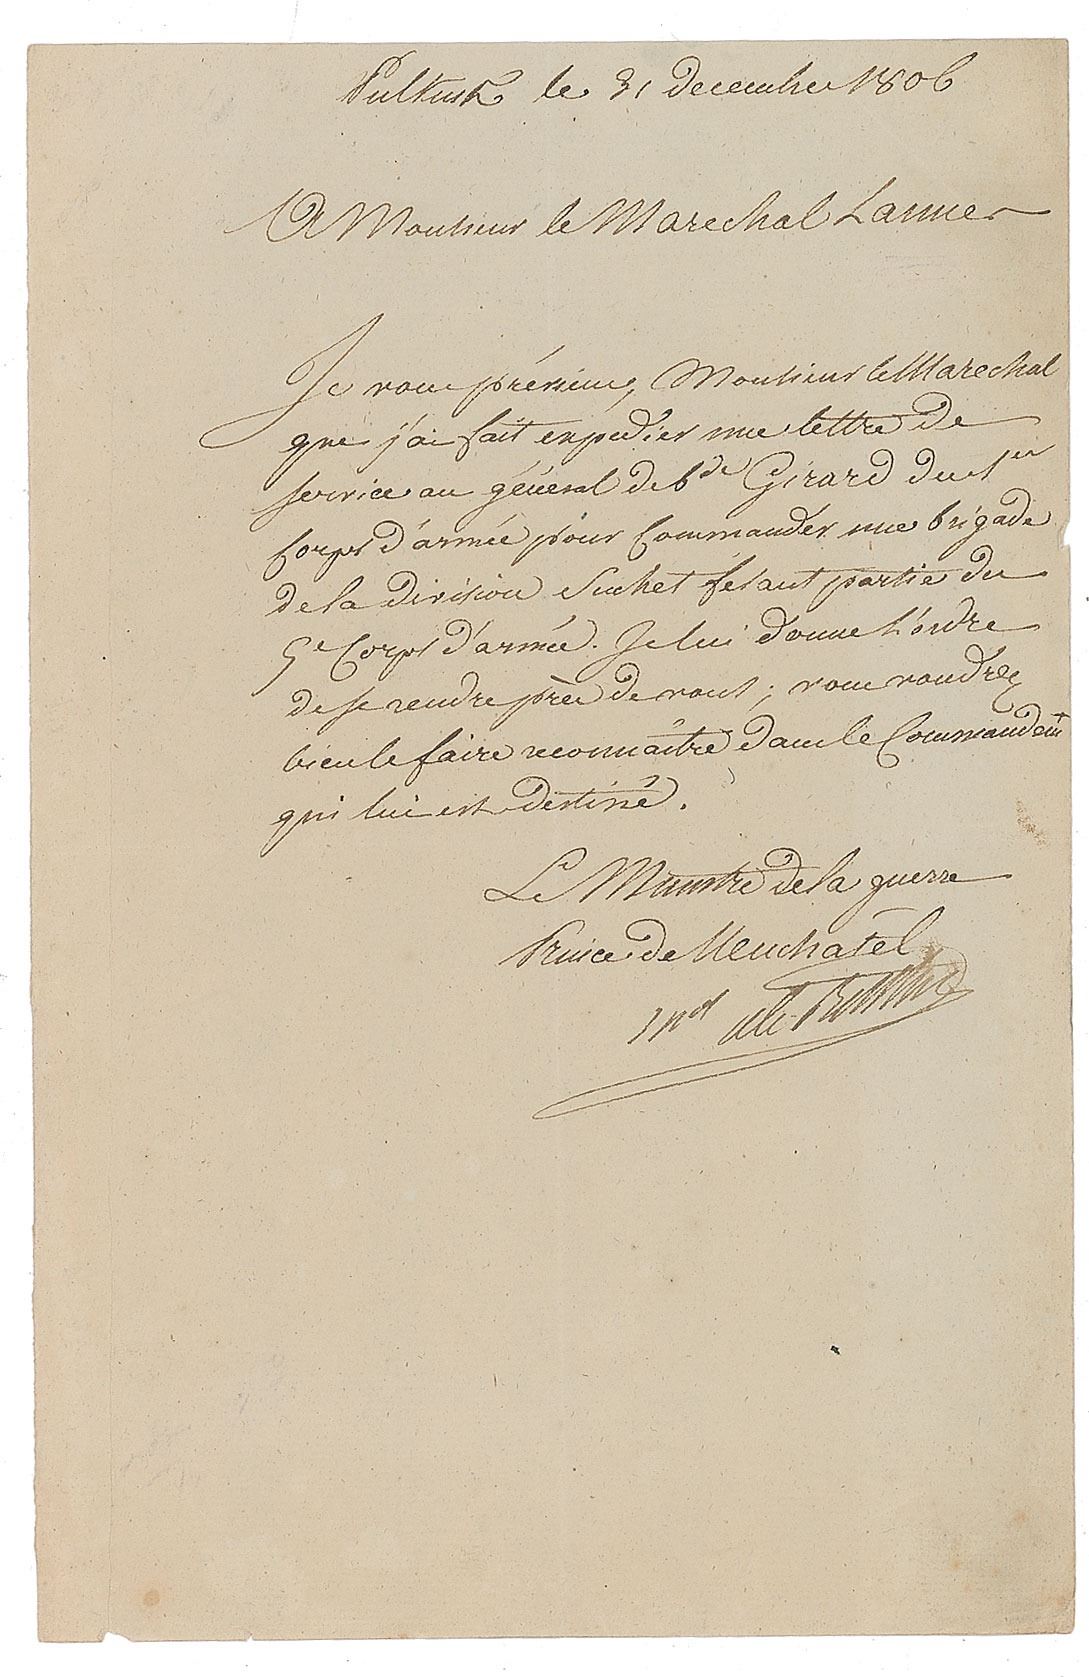 Pultusk le 31 decembre 1806
A Monsieur le Marechal Lannes
Je vous préviens, Monsieur le Marechal
que j'ai fait expedier une lettre de
service au général de b.de Girard du 1er
Corps d'armée pour Commander une brigade
de la division Suchet fesant partie du
5e Corps d'armée. Je lui donne l'ordre
de se rendre près de vous; vous voudrez
bien le faire reconnaître dans le Commandemt
qui lui est destiné.
Le Ministre de la guerre
Prince de Neuchatel
Mal Alex Berthier